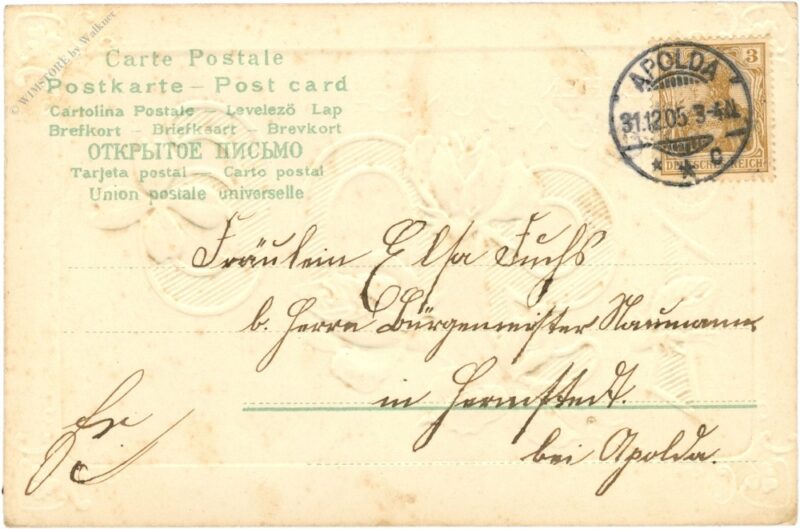 © WIMSTORE by Walkner
Carte Postale
Postkarte – Post card
Cartolina Postale – Levelezö Lap
Brefkort – Briefkaart – Brevkort
ОТКРЫТОЕ ПИСЬМО
Tarjeta postal — Carto postal
Union postale universelle
APOLDA
31.12.05. 3-4N.
* * c
3
DEUTSCHES REICH
Fräulein Elsa Fuchs
b. Herrn Bürgermeister Naumann
in Hermstedt.
bei Apolda.
Fr